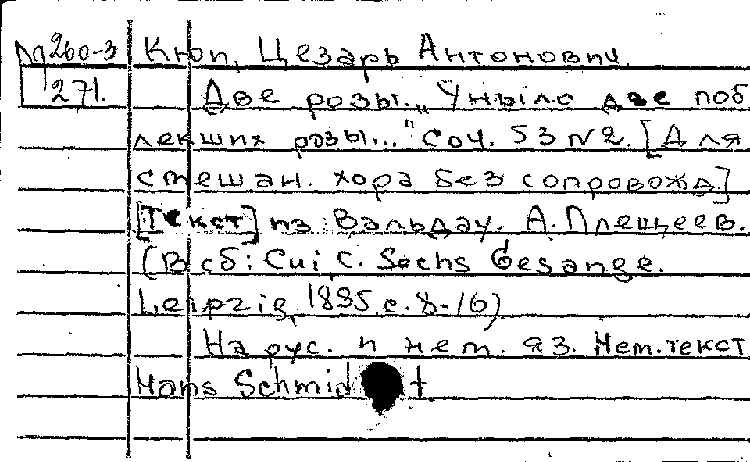 Д 260-3 Кюи, Цезарь Антонович.
271. Две розы. „Уныло две поб
лекших розы..." Соч. 53 № 2. [Для
смешан. хора без сопровожд.]
[Текст] из Вальдау. А. Плещеев.
(В сб: Cui C. Sechs Gesange.
Leipzig, 1895. с. 8-16)
На рус. и нем. яз. Нем. текст
Hans Schmidt